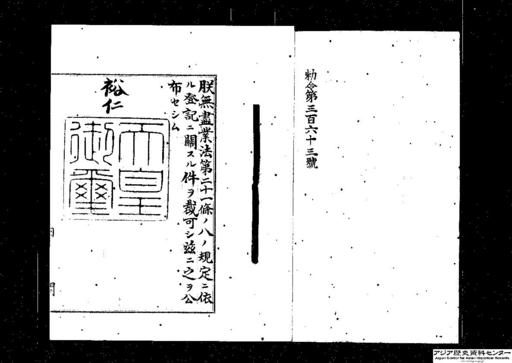 勅令第三百六十三號
朕無盡業法第二十一條ノ八ノ規定ニ依
ル登記ニ關スル件ヲ裁可シ茲ニ之ヲ公
布セシム
裕仁
天皇
御璽
アジア歴史資料センター
Japan Center for Asian Historical Records